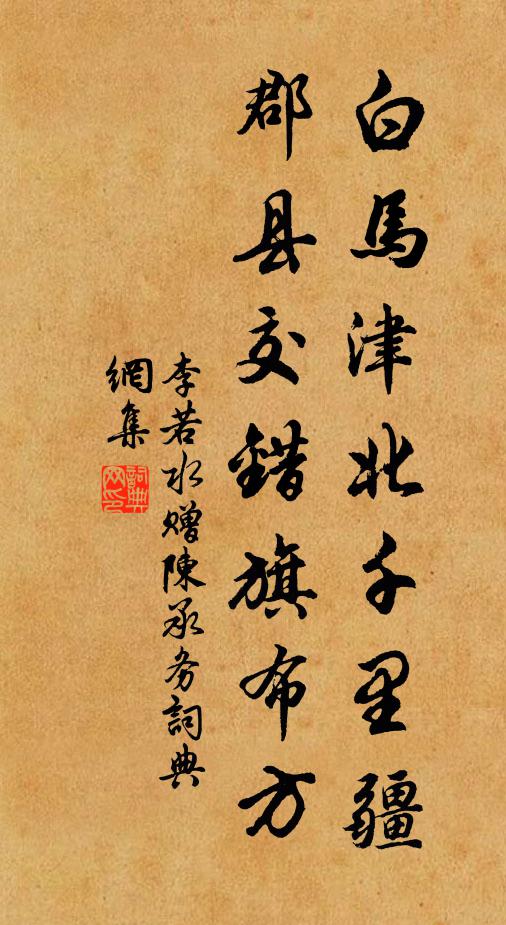 白馬津北千里疆
郡县交錯旗布方
李若水赠陳承务詞典
網集
詞典
网印